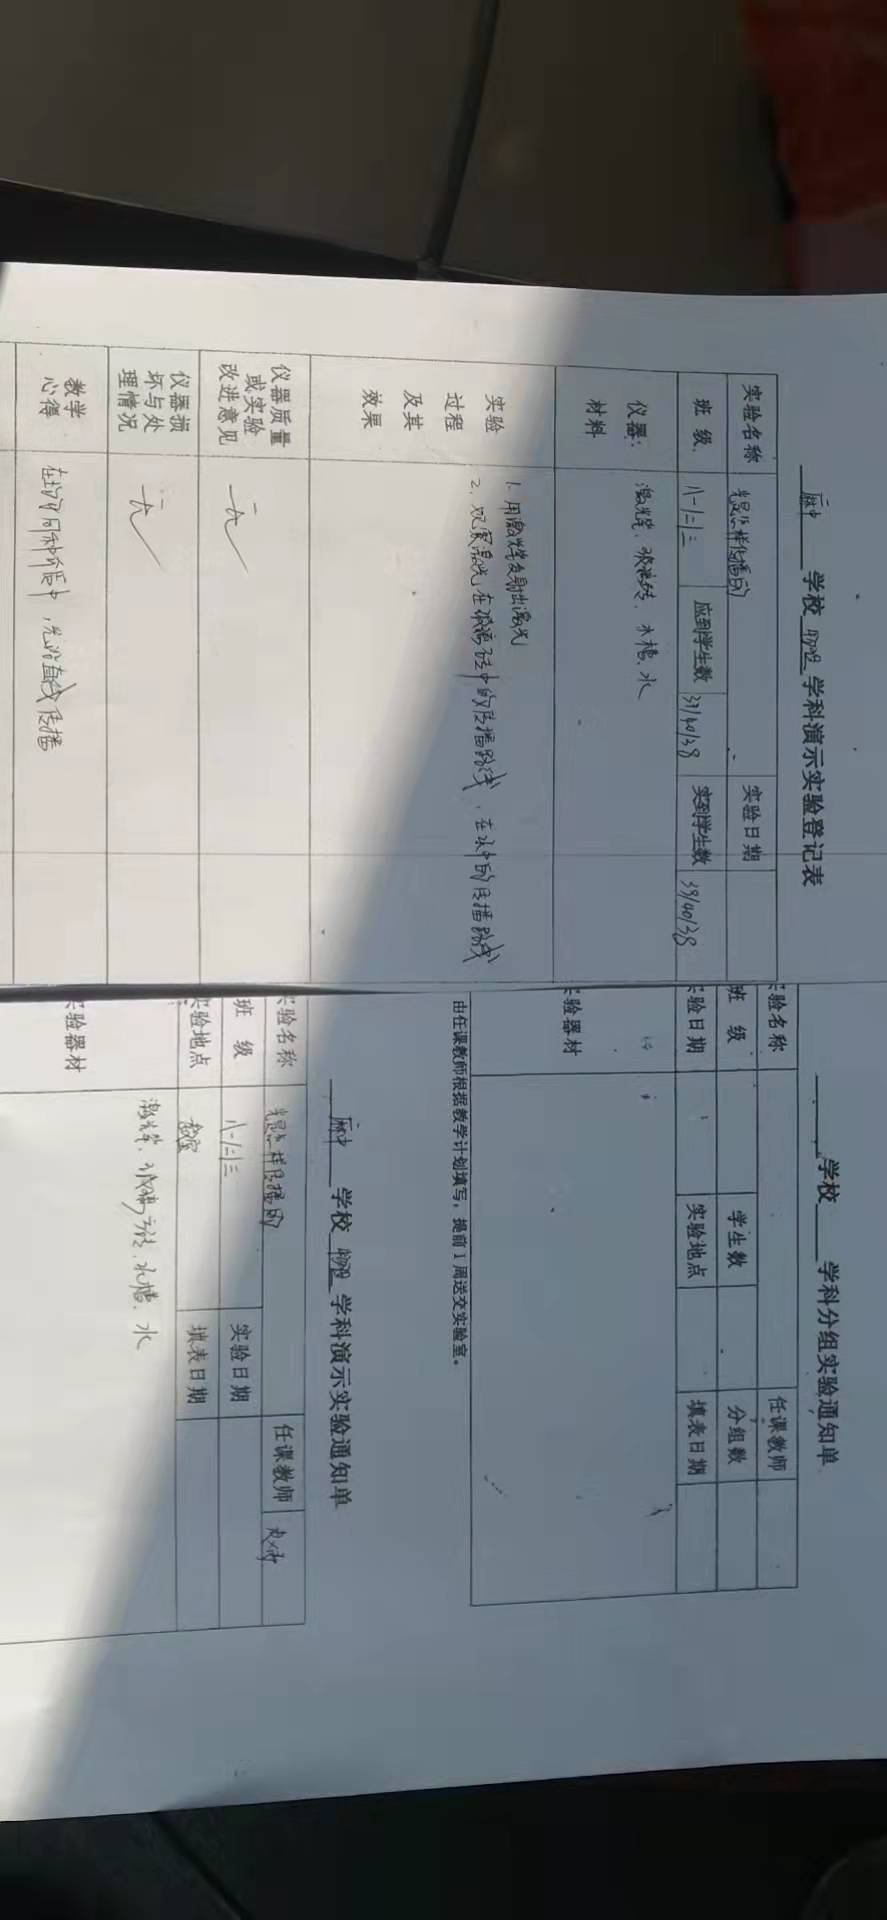 麻中 学校 物理 学科演示实验登记表
实验名称 光是怎样传播的 实验日期
班 级 八一/二/三 应到学生数 39/40/38 实到学生数 39/40/38
仪器: 激光笔、玻璃砖、水槽、水
材料
实验 1. 用激光笔发射出激光
过程 2. 观察激光在玻璃砖中的传播路线,在水中的传播路线
及其
效果
仪器质量
或实验
改进意见
无
仪器损
坏与处
理情况
无
教学
心得
在均匀同种介质中,光沿直线传播
学校 学科分组实验通知单
实验名称 任课教师
班 级 学生数 分组数
实验日期 实验地点 填表日期
实验器材
由任课教师根据教学计划填写,提前1周送交实验室。
麻中 学校 物理 学科演示实验通知单
实验名称 光是怎样传播的 任课教师
班 级 八一/二/三 实验日期
实验地点 教室 填表日期
实验器材 激光笔、玻璃砖、水槽、水